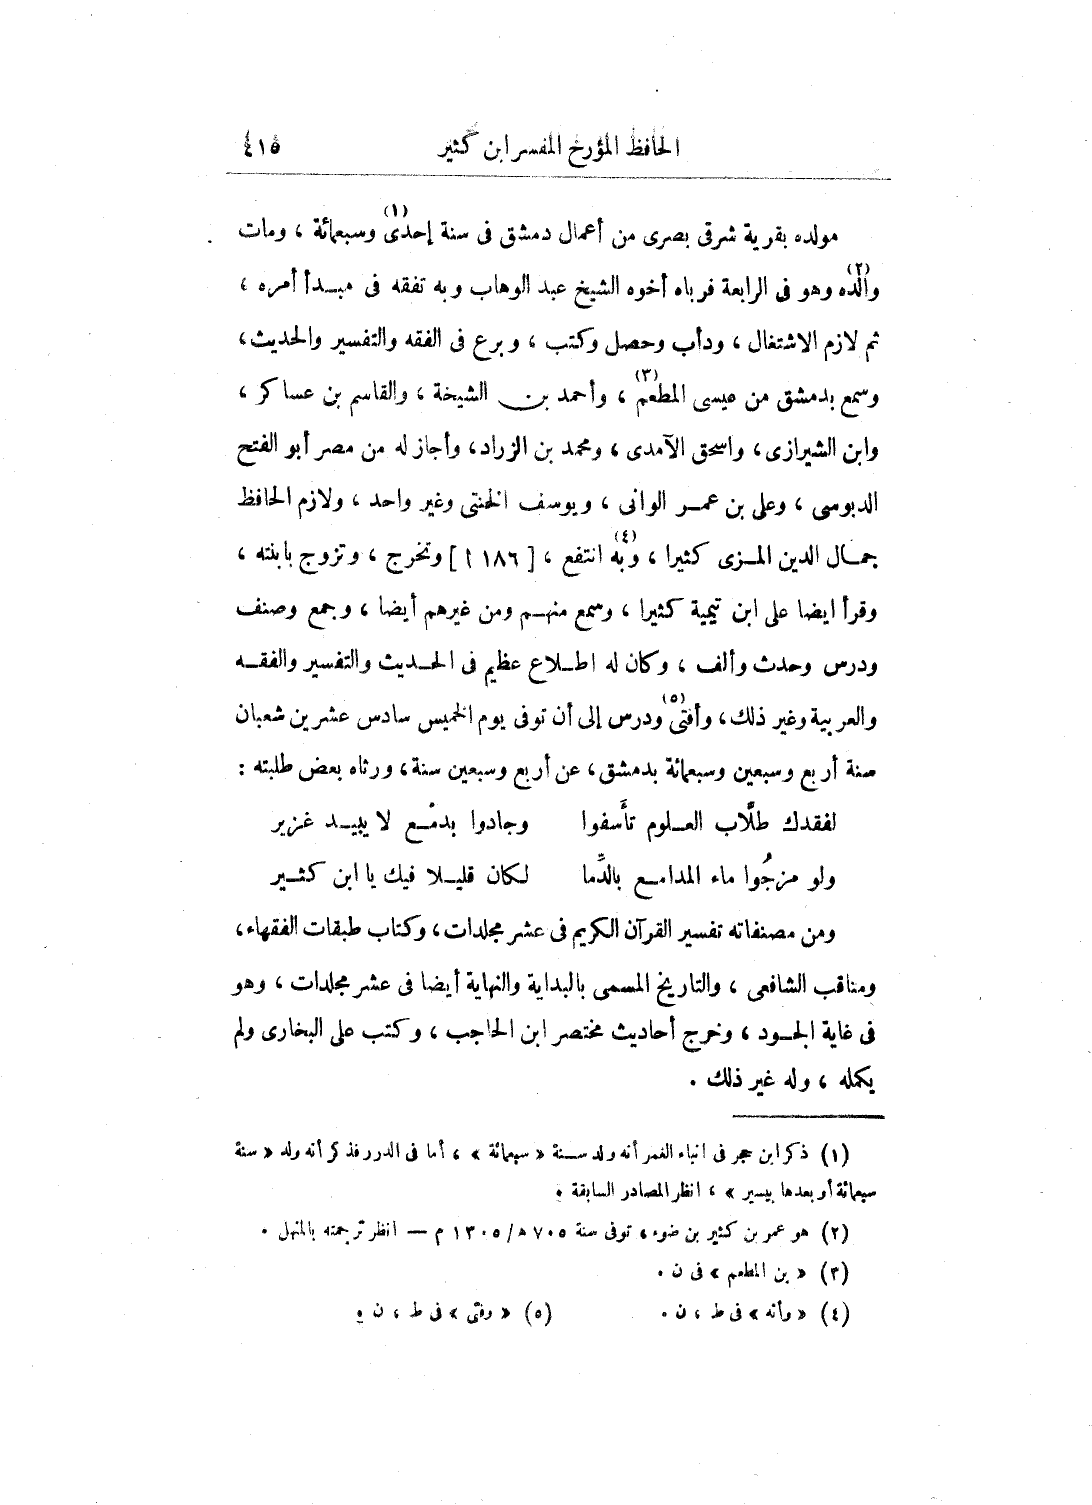 الحافظ المؤرخ المفسر ابن كثير ٤١٥
مولده بقرية شرقى بصرى من أعمال دمشق فى سنة إحدى(١) وسبعمائة ، ومات
والده(٢) وهو فى الرابعة فرباه أخوه الشيخ عبد الوهاب وبه تفقه فى مبدأ أمره ،
ثم لازم الاشتغال ، ودأب وحصل وكتب ، وبرع فى الفقه والتفسير والحديث،
وسمع بدمشق من عيسى المطعم(٣) ، وأحمد بن الشيخة ، والقاسم بن عساكر ،
وابن الشيرازى، واسحق الآمدى ، ومحمد بن الزراد، وأجاز له من مصر أبو الفتح
الدبوسى ، وعلى بن عمر الوانى ، ويوسف الختنى وغير واحد ، ولازم الحافظ
جمال الدين المزى كثيرا ، وبه(٤) انتفع ، [ ١٨٦ أ ] وتخرج ، وتزوج بابنته ،
وقرأ ايضا على ابن تيمية كثيرا ، وسمع منهم ومن غيرهم أيضا ، وجمع وصنف
ودرس وحدث وألف ، وكان له اطلاع عظيم فى الحديث والتفسير والفقه
والعربية وغير ذلك، وأفتى(٥) ودرس إلى أن توفى يوم الخميس سادس عشرين شعبان
سنة أربع وسبعين وسبعمائة بدمشق، عن أربع وسبعين سنة، ورثاه بعض طلبته :
لفقدك طلَّاب العلوم تأَسفوا وجادوا بدمْع لا يبيد غزير
ولو مزجُوا ماء المدامع بالدِّما لكان قليلا فيك يا ابن كثير
ومن مصنفاته تفسير القرآن الكريم فى عشر مجلدات، وكتاب طبقات الفقهاء،
ومناقب الشافعى ، والتاريخ المسمى بالبداية والنهاية أيضا فى عشر مجلدات ، وهو
فى غاية الجود ، وخرج أحاديث مختصر ابن الحاجب ، وكتب على البخارى ولم
يكمله ، وله غير ذلك .
(١) ذكر ابن حجر فى انباء الغمر أنه ولد سنة « سبعمائة » ، أما فى الدرر فذكر أنه ولد « سنة
سبعمائة أو بعدها بيسير » ، انظر المصادر السابقة .
(٢) هو عمر بن كثير بن ضوء ، توفى سنة ٧٠٥ ﻫ/١٣٠٥ م — انظر ترجمته بالمنهل .
(٣) « بن المطعم » فى ن .
(٤) « وأنه » فى ط ، ن . (٥) « وفتى » فى ط ، ن .